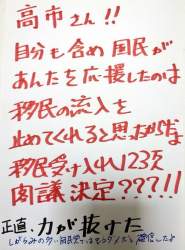 高市さん!!
自分も含め国民が
あんたを応援したのは
移民の流入を
止めてくれると思ったからだよ
移民受け入れ123万
閣議決定???!!
正直、力が抜けた
しがらみの多い国民党ではもうダメだと確信したよ